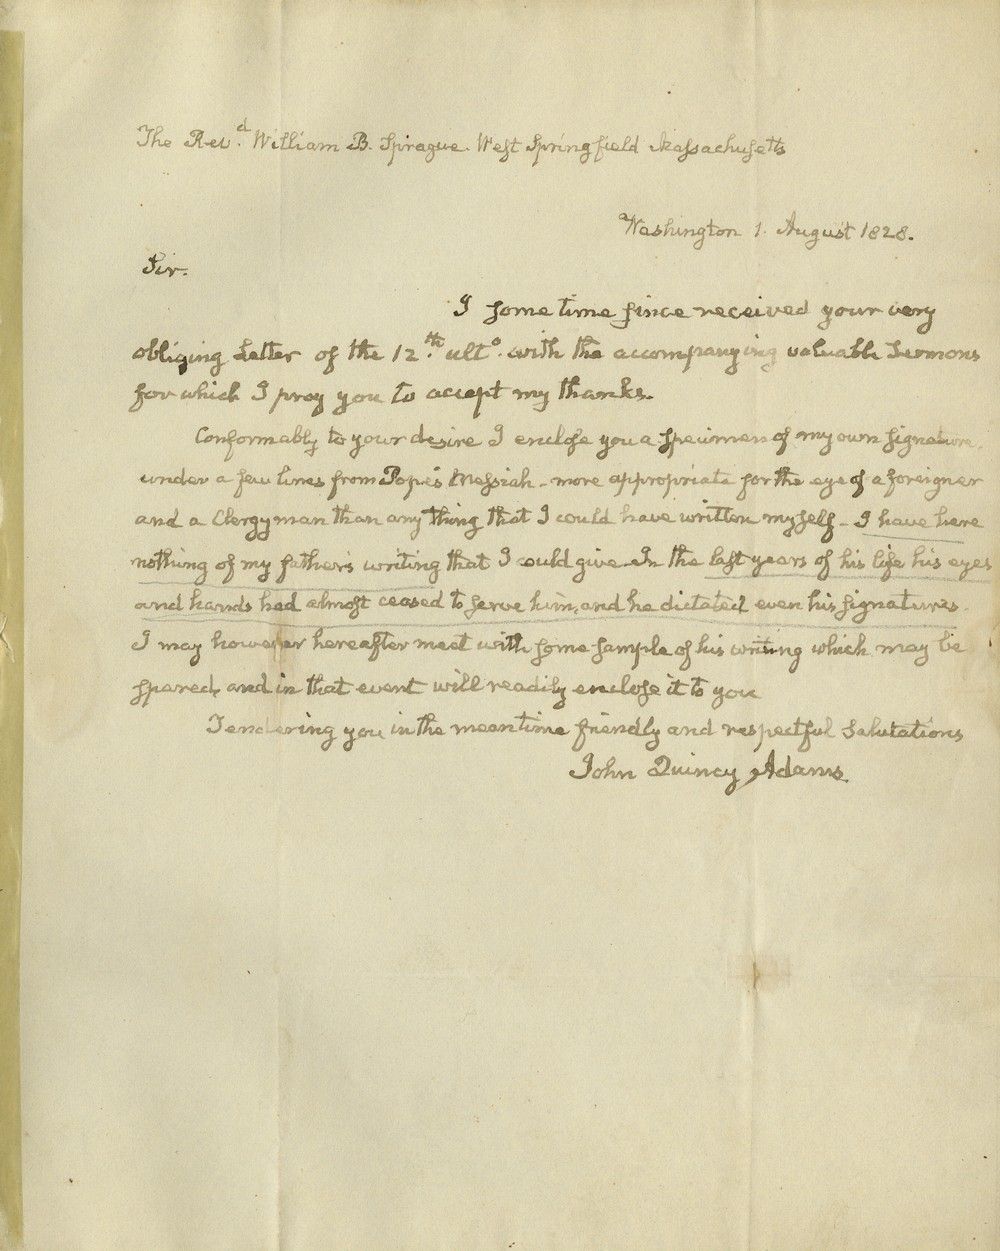 The Rev.d William B. Sprague. West Springfield Massachusetts
Washington 1. August 1828.
Sir.
I some time since received your very
obliging Letter of the 12.th ult.o with the accompanying valuable Sermons
for which I pray you to accept my thanks.
Conformably to your desire I enclose you a specimen of my own signature.
under a few lines from Pope's Messiah - more appropriate for the eye of a foreigner
and a Clergyman than any thing that I could have written myself - I have here
nothing of my father's writing that I could give. In the last years of his life his eyes
and hands had almost ceased to serve him, and he dictated even his signatures.
I may however hereafter meet with some sample of his writing which may be
spared, and in that event will readily enclose it to you
Tendering you in the mean time friendly and respectful Salutations
John Quincy Adams.